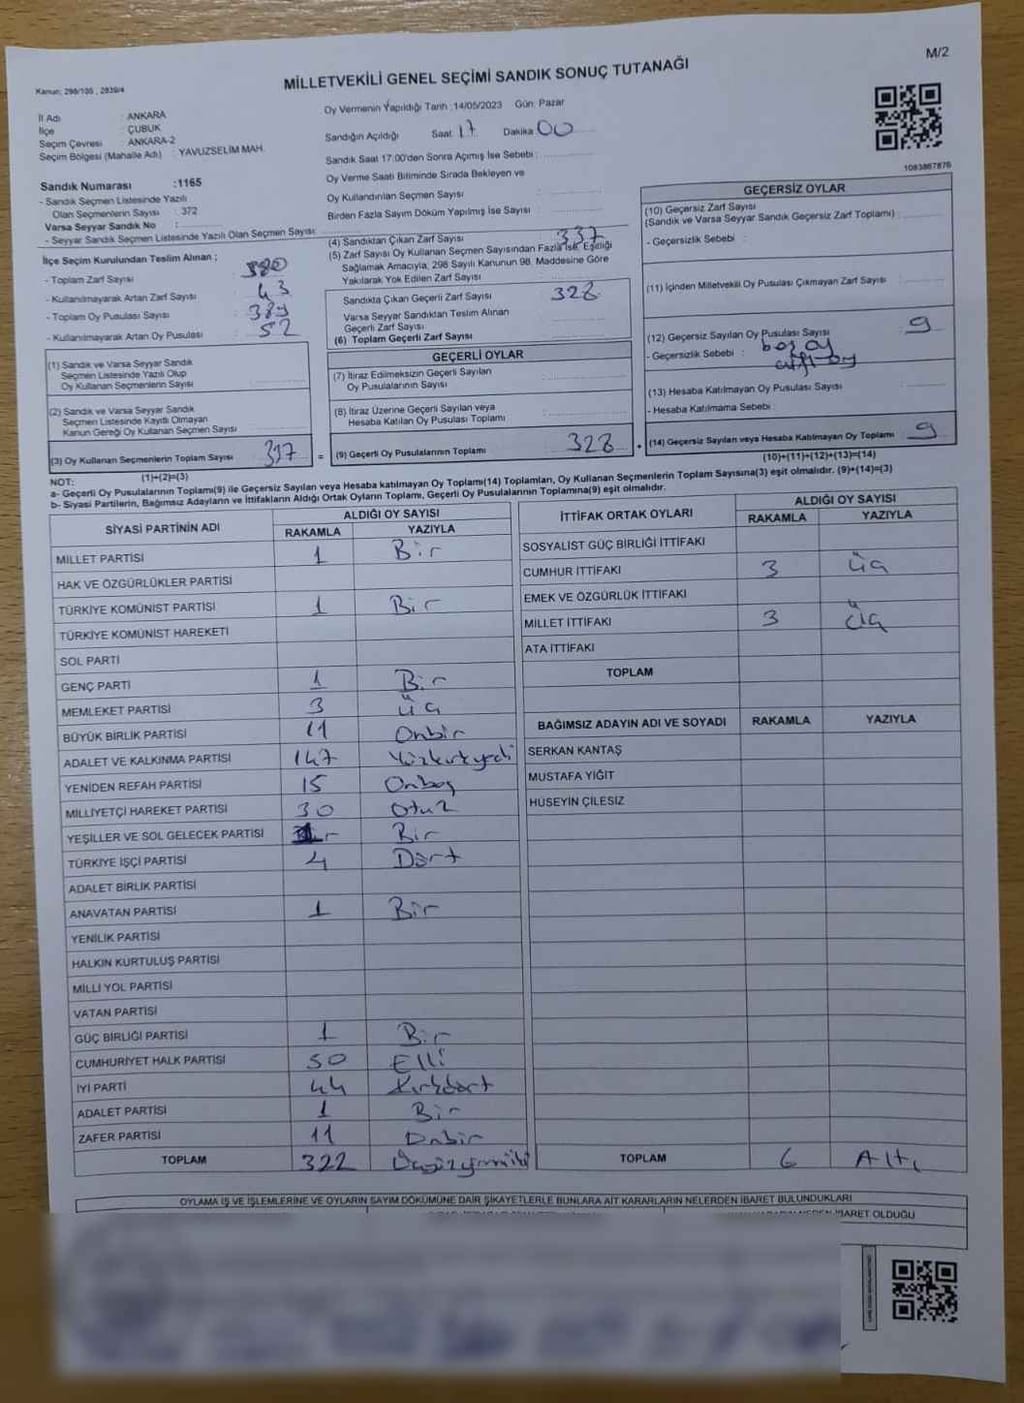 M/2
MİLLETVEKİLİ GENEL SEÇİMİ SANDIK SONUÇ TUTANAĞI
Kanun: 298/105 , 2839/4
İl Adı : ANKARA
İlçe : ÇUBUK
Seçim Çevresi : ANKARA-2
Seçim Bölgesi (Mahalle Adı) : YAVUZSELİM MAH.
Oy Vermenin Yapıldığı Tarih :14/05/2023 Gün: Pazar
Sandığın Açıldığı Saat 17 Dakika 00
Sandık Saat 17:00'den Sonra Açımış İse Sebebi :
Oy Verme Saati Bitiminde Sırada Bekleyen ve
Oy Kullandırılan Seçmen Sayısı :
Birden Fazla Sayım Döküm Yapılmış İse Sayısı :
1083867876
Sandık Numarası :1165
- Sandık Seçmen Listesinde Yazılı
Olan Seçmenlerin Sayısı : 372
Varsa Seyyar Sandık No :
- Seyyar Sandık Seçmen Listesinde Yazılı Olan Seçmen Sayısı:
İlçe Seçim Kurulundan Teslim Alınan ;
- Toplam Zarf Sayısı 380
- Kullanılmayarak Artan Zarf Sayısı 43
- Toplam Oy Pusulası Sayısı 389
- Kullanılmayarak Artan Oy Pusulası 52
(1) Sandık ve Varsa Seyyar Sandık
Seçmen Listesinde Yazılı Olup
Oy Kullanan Seçmenlerin Sayısı
(2) Sandık ve Varsa Seyyar Sandık
Seçmen Listesinde Kayıtlı Olmayan
Kanun Gereği Oy Kullanan Seçmen Sayısı
(3) Oy Kullanan Seçmenlerin Toplam Sayısı 337 =
(1)+(2)=(3)
(4) Sandıktan Çıkan Zarf Sayısı 337
(5) Zarf Sayısı Oy Kullanan Seçmen Sayısından Fazla İse, Eşitliği
Sağlamak Amacıyla, 298 Sayılı Kanunun 98. Maddesine Göre
Yakılarak Yok Edilen Zarf Sayısı
Sandıkta Çıkan Geçerli Zarf Sayısı 328
Varsa Seyyar Sandıktan Teslim Alınan
Geçerli Zarf Sayısı
(6) Toplam Geçerli Zarf Sayısı
GEÇERLİ OYLAR
(7) İtiraz Edilmeksizin Geçerli Sayılan
Oy Pusulalarının Sayısı
(8) İtiraz Üzerine Geçerli Sayılan veya
Hesaba Katılan Oy Pusulası Toplamı
(9) Geçerli Oy Pusulalarının Toplamı 328 +
GEÇERSİZ OYLAR
(10) Geçersiz Zarf Sayısı
(Sandık ve Varsa Seyyar Sandık Geçersiz Zarf Toplamı)
- Geçersizlik Sebebi :
(11) İçinden Milletvekili Oy Pusulası Çıkmayan Zarf Sayısı
(12) Geçersiz Sayılan Oy Pusulası Sayısı 9
- Geçersizlik Sebebi : boş oy
çift oy
(13) Hesaba Katılmayan Oy Pusulası Sayısı
- Hesaba Katılmama Sebebi :
(14) Geçersiz Sayılan veya Hesaba Katılmayan Oy Toplamı 9
(10)+(11)+(12)+(13)=(14)
NOT:
a- Geçerli Oy Pusulalarının Toplamı(9) ile Geçersiz Sayılan veya Hesaba Katılmayan Oy Toplamı(14) Toplamları, Oy Kullanan Seçmenlerin Toplam Sayısına(3) eşit olmalıdır. (9)+(14)=(3)
b- Siyasi Partilerin, Bağımsız Adayların ve İttifakların Aldığı Ortak Oyların Toplamı, Geçerli Oy Pusulalarının Toplamına(9) eşit olmalıdır.
SİYASİ PARTİNİN ADI ALDIĞI OY SAYISI
RAKAMLA YAZIYLA
MİLLET PARTİSİ 1 Bir
HAK VE ÖZGÜRLÜKLER PARTİSİ
TÜRKİYE KOMÜNİST PARTİSİ 1 Bir
TÜRKİYE KOMÜNİST HAREKETİ
SOL PARTİ
GENÇ PARTİ 1 Bir
MEMLEKET PARTİSİ 3 üç
BÜYÜK BİRLİK PARTİSİ 11 Onbir
ADALET VE KALKINMA PARTİSİ 147 Yüzkırkyedi
YENİDEN REFAH PARTİSİ 15 Onbeş
MİLLİYETÇİ HAREKET PARTİSİ 30 Otuz
YEŞİLLER VE SOL GELECEK PARTİSİ Bir
TÜRKİYE İŞÇİ PARTİSİ 4 Dört
ADALET BİRLİK PARTİSİ
ANAVATAN PARTİSİ 1 Bir
YENİLİK PARTİSİ
HALKIN KURTULUŞ PARTİSİ
MİLLİ YOL PARTİSİ
VATAN PARTİSİ
GÜÇ BİRLİĞİ PARTİSİ 1 Bir
CUMHURİYET HALK PARTİSİ 50 Elli
İYİ PARTİ 44 Kırkdört
ADALET PARTİSİ 1 Bir
ZAFER PARTİSİ 11 Onbir
TOPLAM 322 Üçyüzyirmiiki
İTTİFAK ORTAK OYLARI ALDIĞI OY SAYISI
RAKAMLA YAZIYLA
SOSYALİST GÜÇ BİRLİĞİ İTTİFAKI
CUMHUR İTTİFAKI 3 üç
EMEK VE ÖZGÜRLÜK İTTİFAKI
MİLLET İTTİFAKI 3 üç
ATA İTTİFAKI
TOPLAM
BAĞIMSIZ ADAYIN ADI VE SOYADI RAKAMLA YAZIYLA
SERKAN KANTAŞ
MUSTAFA YİĞİT
HÜSEYİN ÇİLESİZ
TOPLAM 6 Altı
OYLAMA İŞ VE İŞLEMLERİNE VE OYLARIN SAYIM DÖKÜMÜNE DAİR ŞİKAYETLERLE BUNLARA AİT KARARLARIN NELERDEN İBARET BULUNDUKLARI
İBARET OLDUĞU